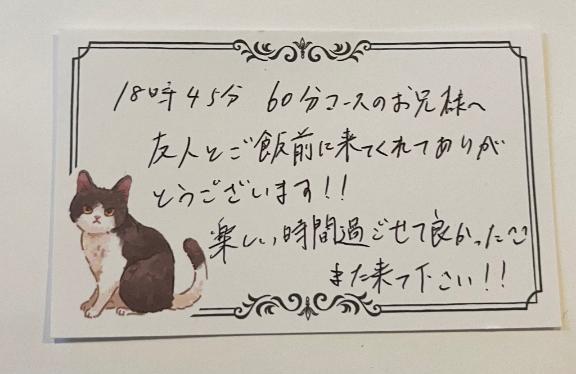 18時45分 60分コースのお兄様へ
友人とご飯前に来てくれてありが
とうございます!!
楽しい時間過ごせて良かった😊
また来て下さい!!